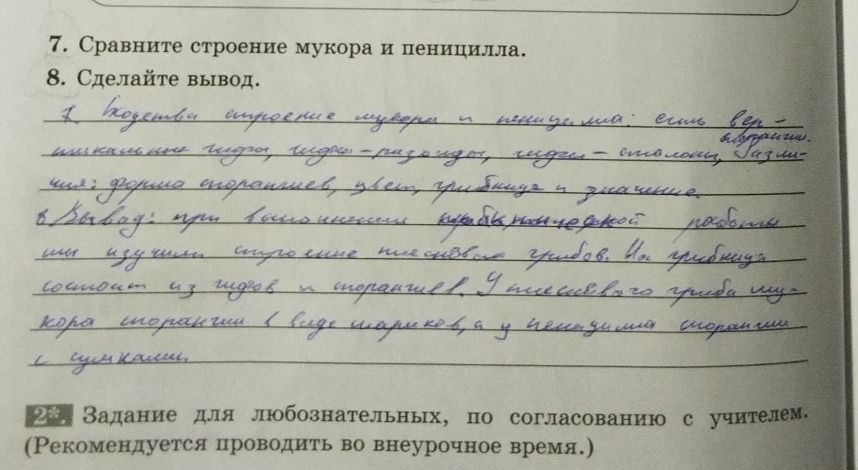 7. Сравните строение мукора и пеницилла.
8. Сделайте вывод.
7. Сходства строение мукора и пеницилла: есть вер-
спорангии.
тикальные гифы, гифы-ризоиды, гифы-столоны, Разли-
чия: форма спорангиев, цвет, грибница и значение.
8 Вывод: при выполнении работы
мы изучили строение плесневых грибов. Их грибница
состоит из гифов и спорангиев. У плесневого гриба му-
кора спорангии в виде шариков, а у пеницилла спорангии
с сумками.
2*. Задание для любознательных, по согласованию с учителем.
(Рекомендуется проводить во внеурочное время.)